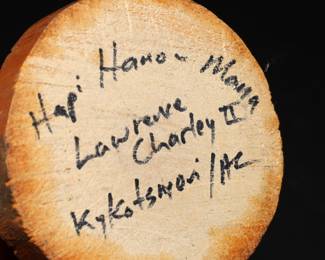 Hopi Hano - Mana
Lawrence
Charley II
Kykotsmovi / AZ